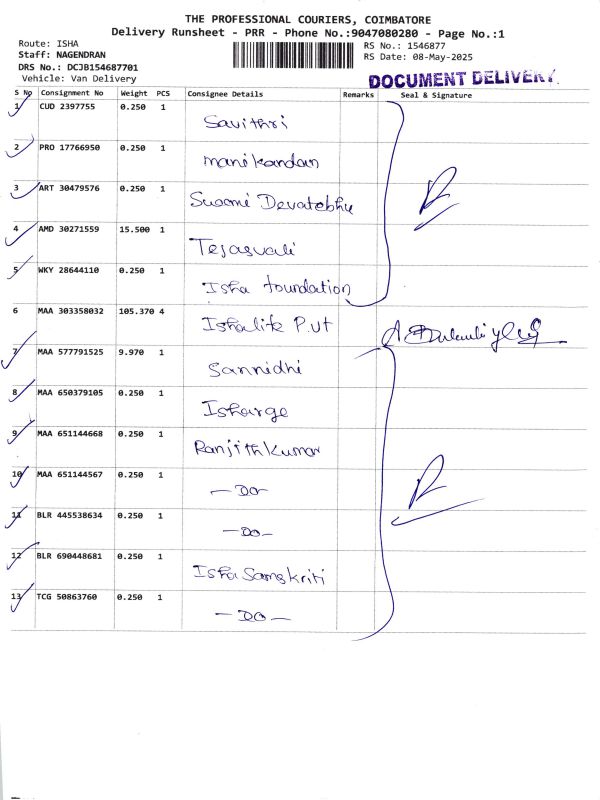 THE PROFESSIONAL COURIERS, COIMBATORE
Delivery Runsheet - PRR - Phone No.:9047080280 - Page No.:1
Route: ISHA
Staff: NAGENDRAN
DRS No.: DCJB154687701
Vehicle: Van Delivery
RS No.: 1546877
RS Date: 08-May-2025
DOCUMENT DELIVERY.
S No Consignment No Weight PCS Consignee Details Remarks Seal & Signature
1 CUD 2397755 0.250 1 Savithri
2 PRO 17766950 0.250 1 manikandan
3 ART 30479576 0.250 1 Swami Devatebhu
4 AMD 30271559 15.500 1 Tejasvali
5 WKY 28644110 0.250 1 Isha foundation
6 MAA 303358032 105.370 4 Ishalife P.ut
7 MAA 577791525 9.970 1 Sannidhi
8 MAA 650379105 0.250 1 Isharge
9 MAA 651144668 0.250 1 Ranjithkumar
10 MAA 651144567 0.250 1 — Do —
11 BLR 445538634 0.250 1 — Do —
12 BLR 690448681 0.250 1 Isha Samskriti
13 TCG 50863760 0.250 1 — DO —